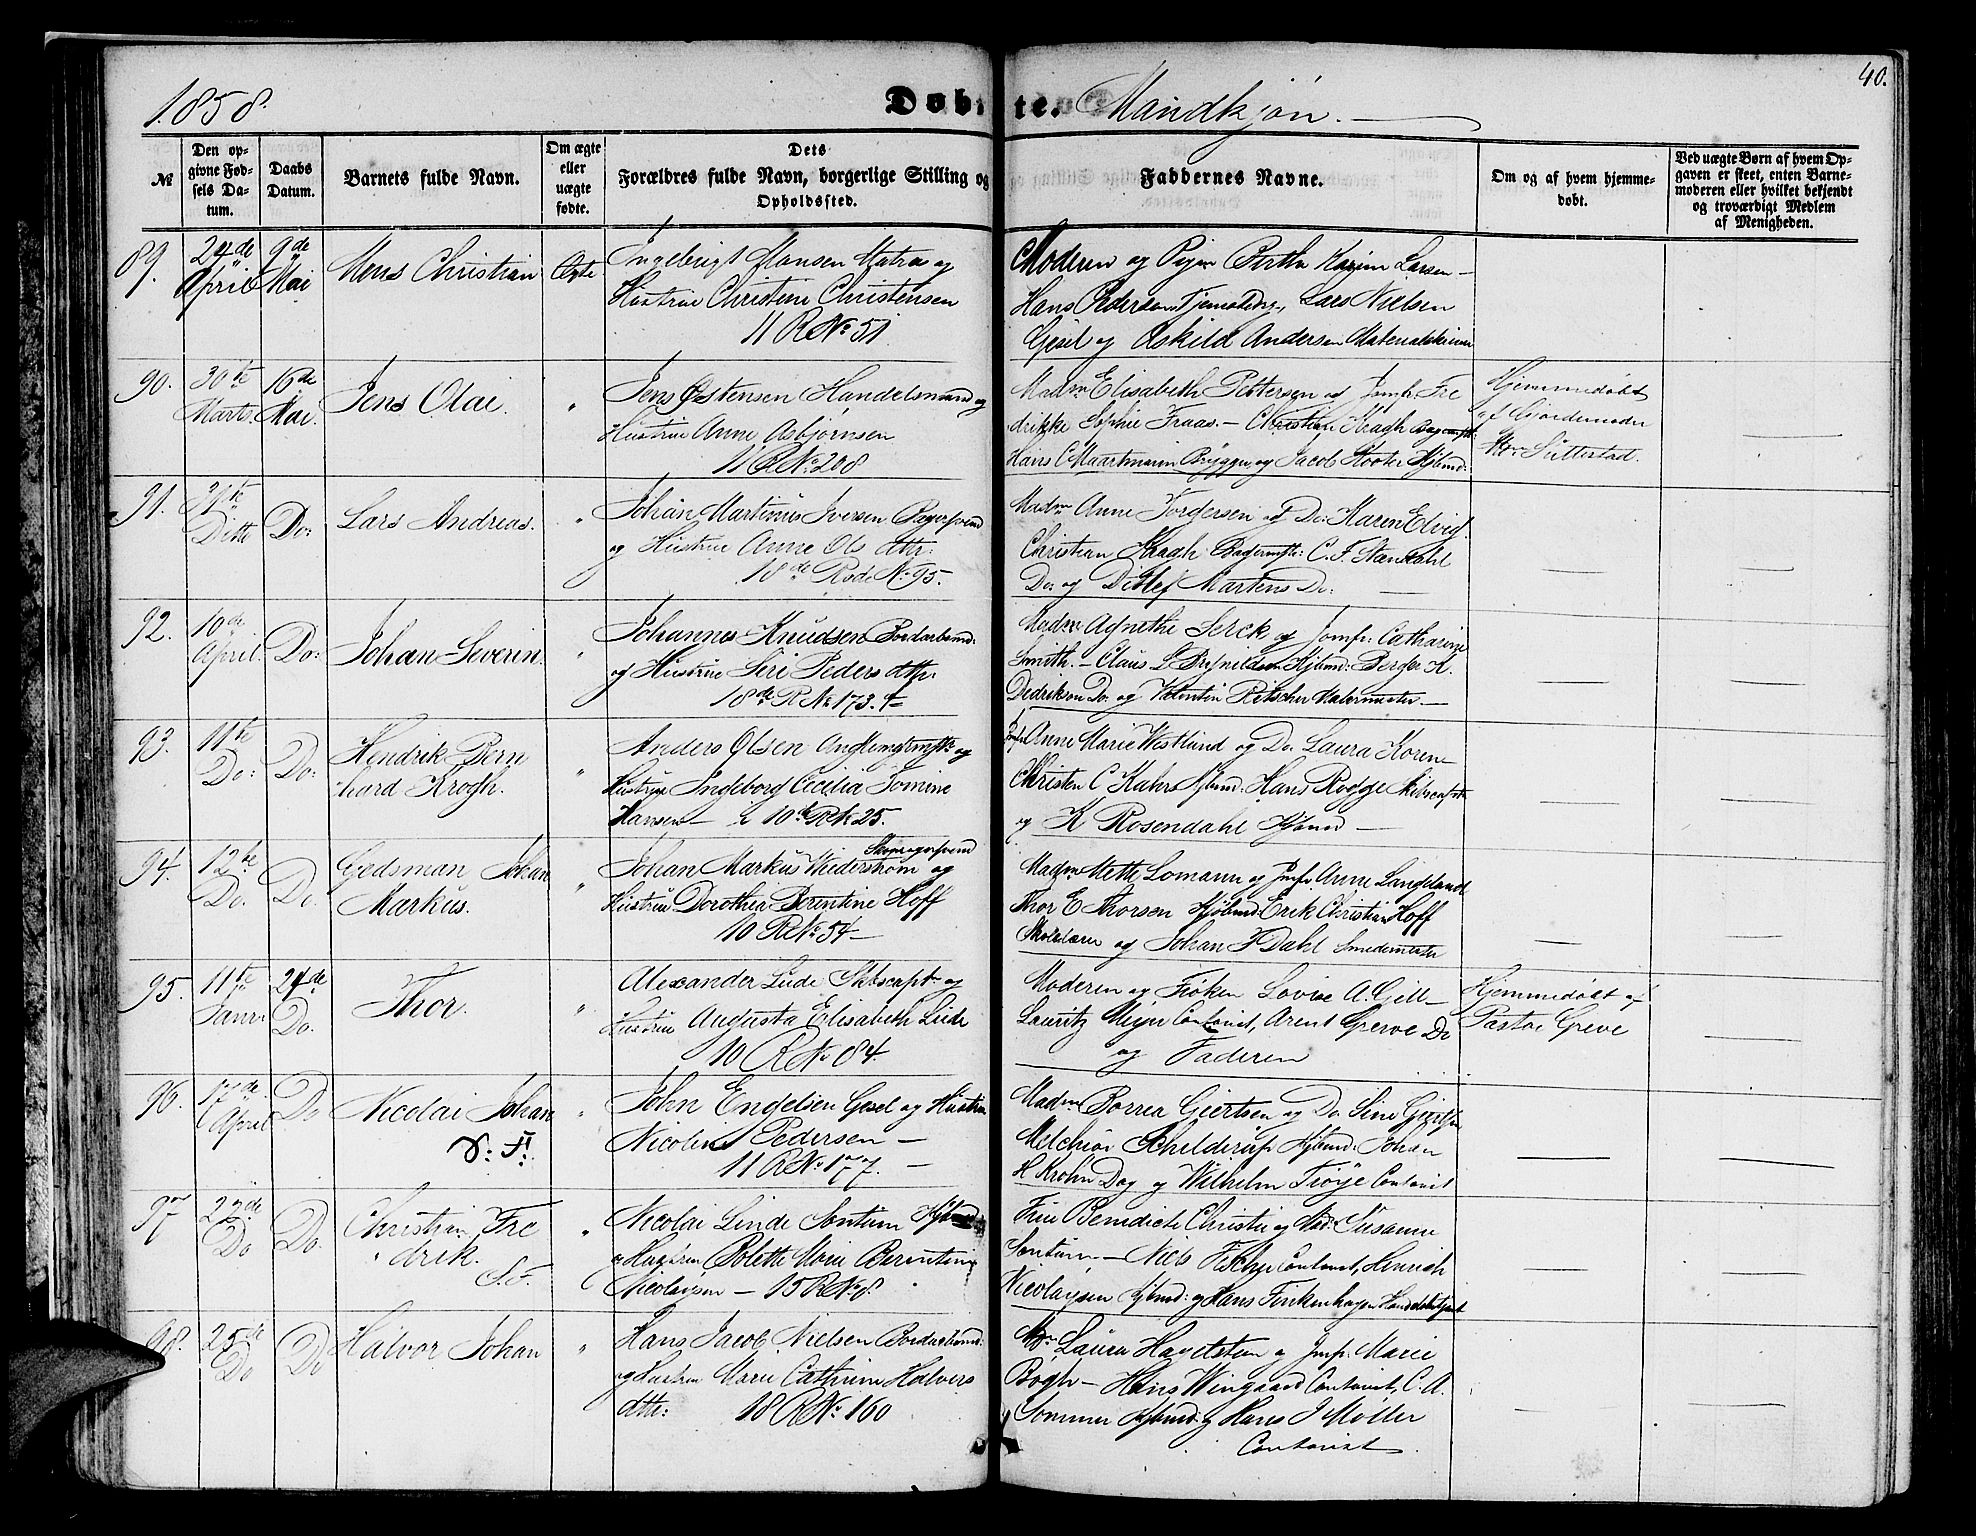 40.
1858.
Døbte. Mandkjøn.
№
Den opgivne Fødsels Datum.
Daabs Datum.
Barnets fulde Navn.
Om ægte eller uægte fødte.
Dets Forældres fulde Navn, borgerlige Stilling og Opholdssted.
Faddernes Navne.
Om og af hvem hjemmedøbt.
Ved uægte Børn af hvem Opgaven er skeet, enten Barnemoderen eller hvilket bekjendt og troværdigt Medlem af Menigheden.
89. 24de April 9de Mai Mens Christian Ægte
Ingebrigt Hansen Matros og
Hustrue Christine Christensen
11 R No 51
Moderen og Pigen Birthe Karine Larsen
Hans Pedersen Lars Nielsen
Gesel og Oskild Andersen
90. 30te Marts. 16de Mai. Jens Olai. "
Jens Østensen Handelsmand og
Hustrue Anne Asbjørnsen
11 R No 208
Madm Elisabeth Pettersen og Jomfr. Fre
drikke Sophie Fraas. - Christian Kragh Bagermstr:
Hans C Maartmann Brygger og Jacob Kooter Kjbmd:
Hjemmedøbt
af Gjordemoder
Sütterstad.
91. 31te Ditto Do: Lars Andreas. "
Johan Martinus Iversen Bagersvend
og Hustrue Anne Ols dtr:
18de Rode No 95.
Madm Anne Tordersen og Do: Karen Elvig.
Christian Kragh Bagermstr: C. F. Stendahl
Do: og Ditlef Martens Do:
92. 10de April. Do: Johan Severin. "
Johannes Knudsen Bordarbmd:
og Hustrue Siri Peders dtr.
18de R No 173.
Madm Agnethe Serck og Jomfr: Catharine
Smith. - Claus Kjbmd: Berger A.
Dedriksen Do. og Valentin Retscher Malermester -
93. 11te Do: Do: Hendrik Bern
hard Krogh. "
Anders Olsen og
Hustrue Ingeborg Cecilia Tomine
Hansen - 10de R No 25.
Jomfr Anne Marie Westlund og Do. Laura Korene
Christen C Kahrs Kjbmd. Hans Rogge Skibscapt
og K Rosendahl Kjbmd -
94. 12te Do. Do. Gedsman Johan
Markus. "
Johan Markus Wiederstrøm og
Hustrue Dorothea Berentine Hoff
10 R No 54 -
Madm Mette Lomann og Jmfr. Anne Langeland
Thor E Thorsen Kjøbmd. Erik Christian Hoff
Skolelærer og Johan F Dahl Smedemester
95. 11te Janr. 24de Do. Thor. "
Alexander Lude Skbscapt. og
Hustrue Augusta Elisabeth Lude
10 R No 84.
Moderen og Frøken Lovise A. Gill -
Lauritz Meyer Contorist, Arent Greve Do
og Faderen
Hjemmedøbt af
Pastor Greve
96. 17de April Do Nicolai Johan "
John Engelsen Gesel og Hustrue
Nicoline Pedersen -
11 R No 177. -
Madm Borrea Giertsen og Do. Sine Giertsen
Melchior Schilderup Kjbmd: Johan
H Krohn Do og Wilhelm Frøye Contorist
97 22de Do Do. Christian Fre
drik. "
S. F.
Nicolai Linde Sontum
og Hustrue Bolette Marie Berentine
Nicolaysen - 15 R No 8
Frue Benedicte Christie og Susanne
Sontum - Niels Contorist, Hinrich
Nicolaysen Kjbmd: og Hans Finkenhagen
98. 25de Do Do Halvor Johan "
Hans Jacob Nielsen Bordarbmd:
og Hustrue Marie Cathrine Halvors
dtr: 18 R No 160
Laura Hagelsteen og Jmfr. Marie
Bogh - Hans Wingaard Contorist, C. A.
Sommer Kjbmd: og Hans J Møller
Contorist.